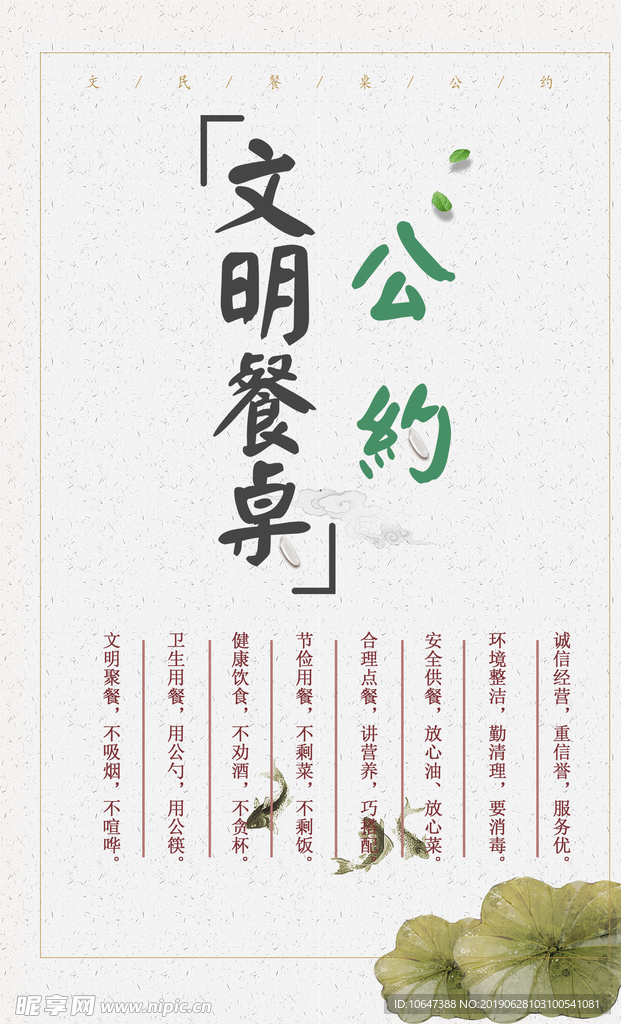 文/民/餐/桌/公/约
「文明餐桌」
公約
诚信经营，重信誉，服务优。
环境整洁，勤清理，要消毒。
安全供餐，放心油、放心菜。
合理点餐，讲营养，巧搭配。
节俭用餐，不剩菜，不剩饭。
健康饮食，不劝酒，不贪杯。
卫生用餐，用公勺，用公筷。
文明聚餐，不吸烟，不喧哗。
昵享网 www.nipic.cn
ID:10647388 NO:20190628103100541081